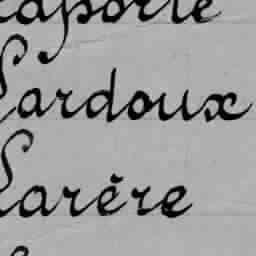 Laporte
Lardoux
Larère